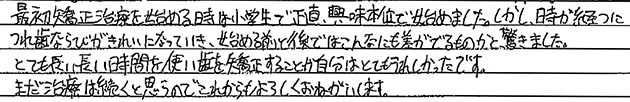 最初矯正治療を始める時は小学生で正直、興味本位で始めました。しかし、時が経つに
つれ歯ならびがきれいになっていき、始める前と後ではこんなにも差がでるものかと、驚きました。
とても長い長い時間を使い歯を矯正することが自分はとてもうれしかったです。
まだ治療は続くと思うのでこれからもよろしくおねがいします。